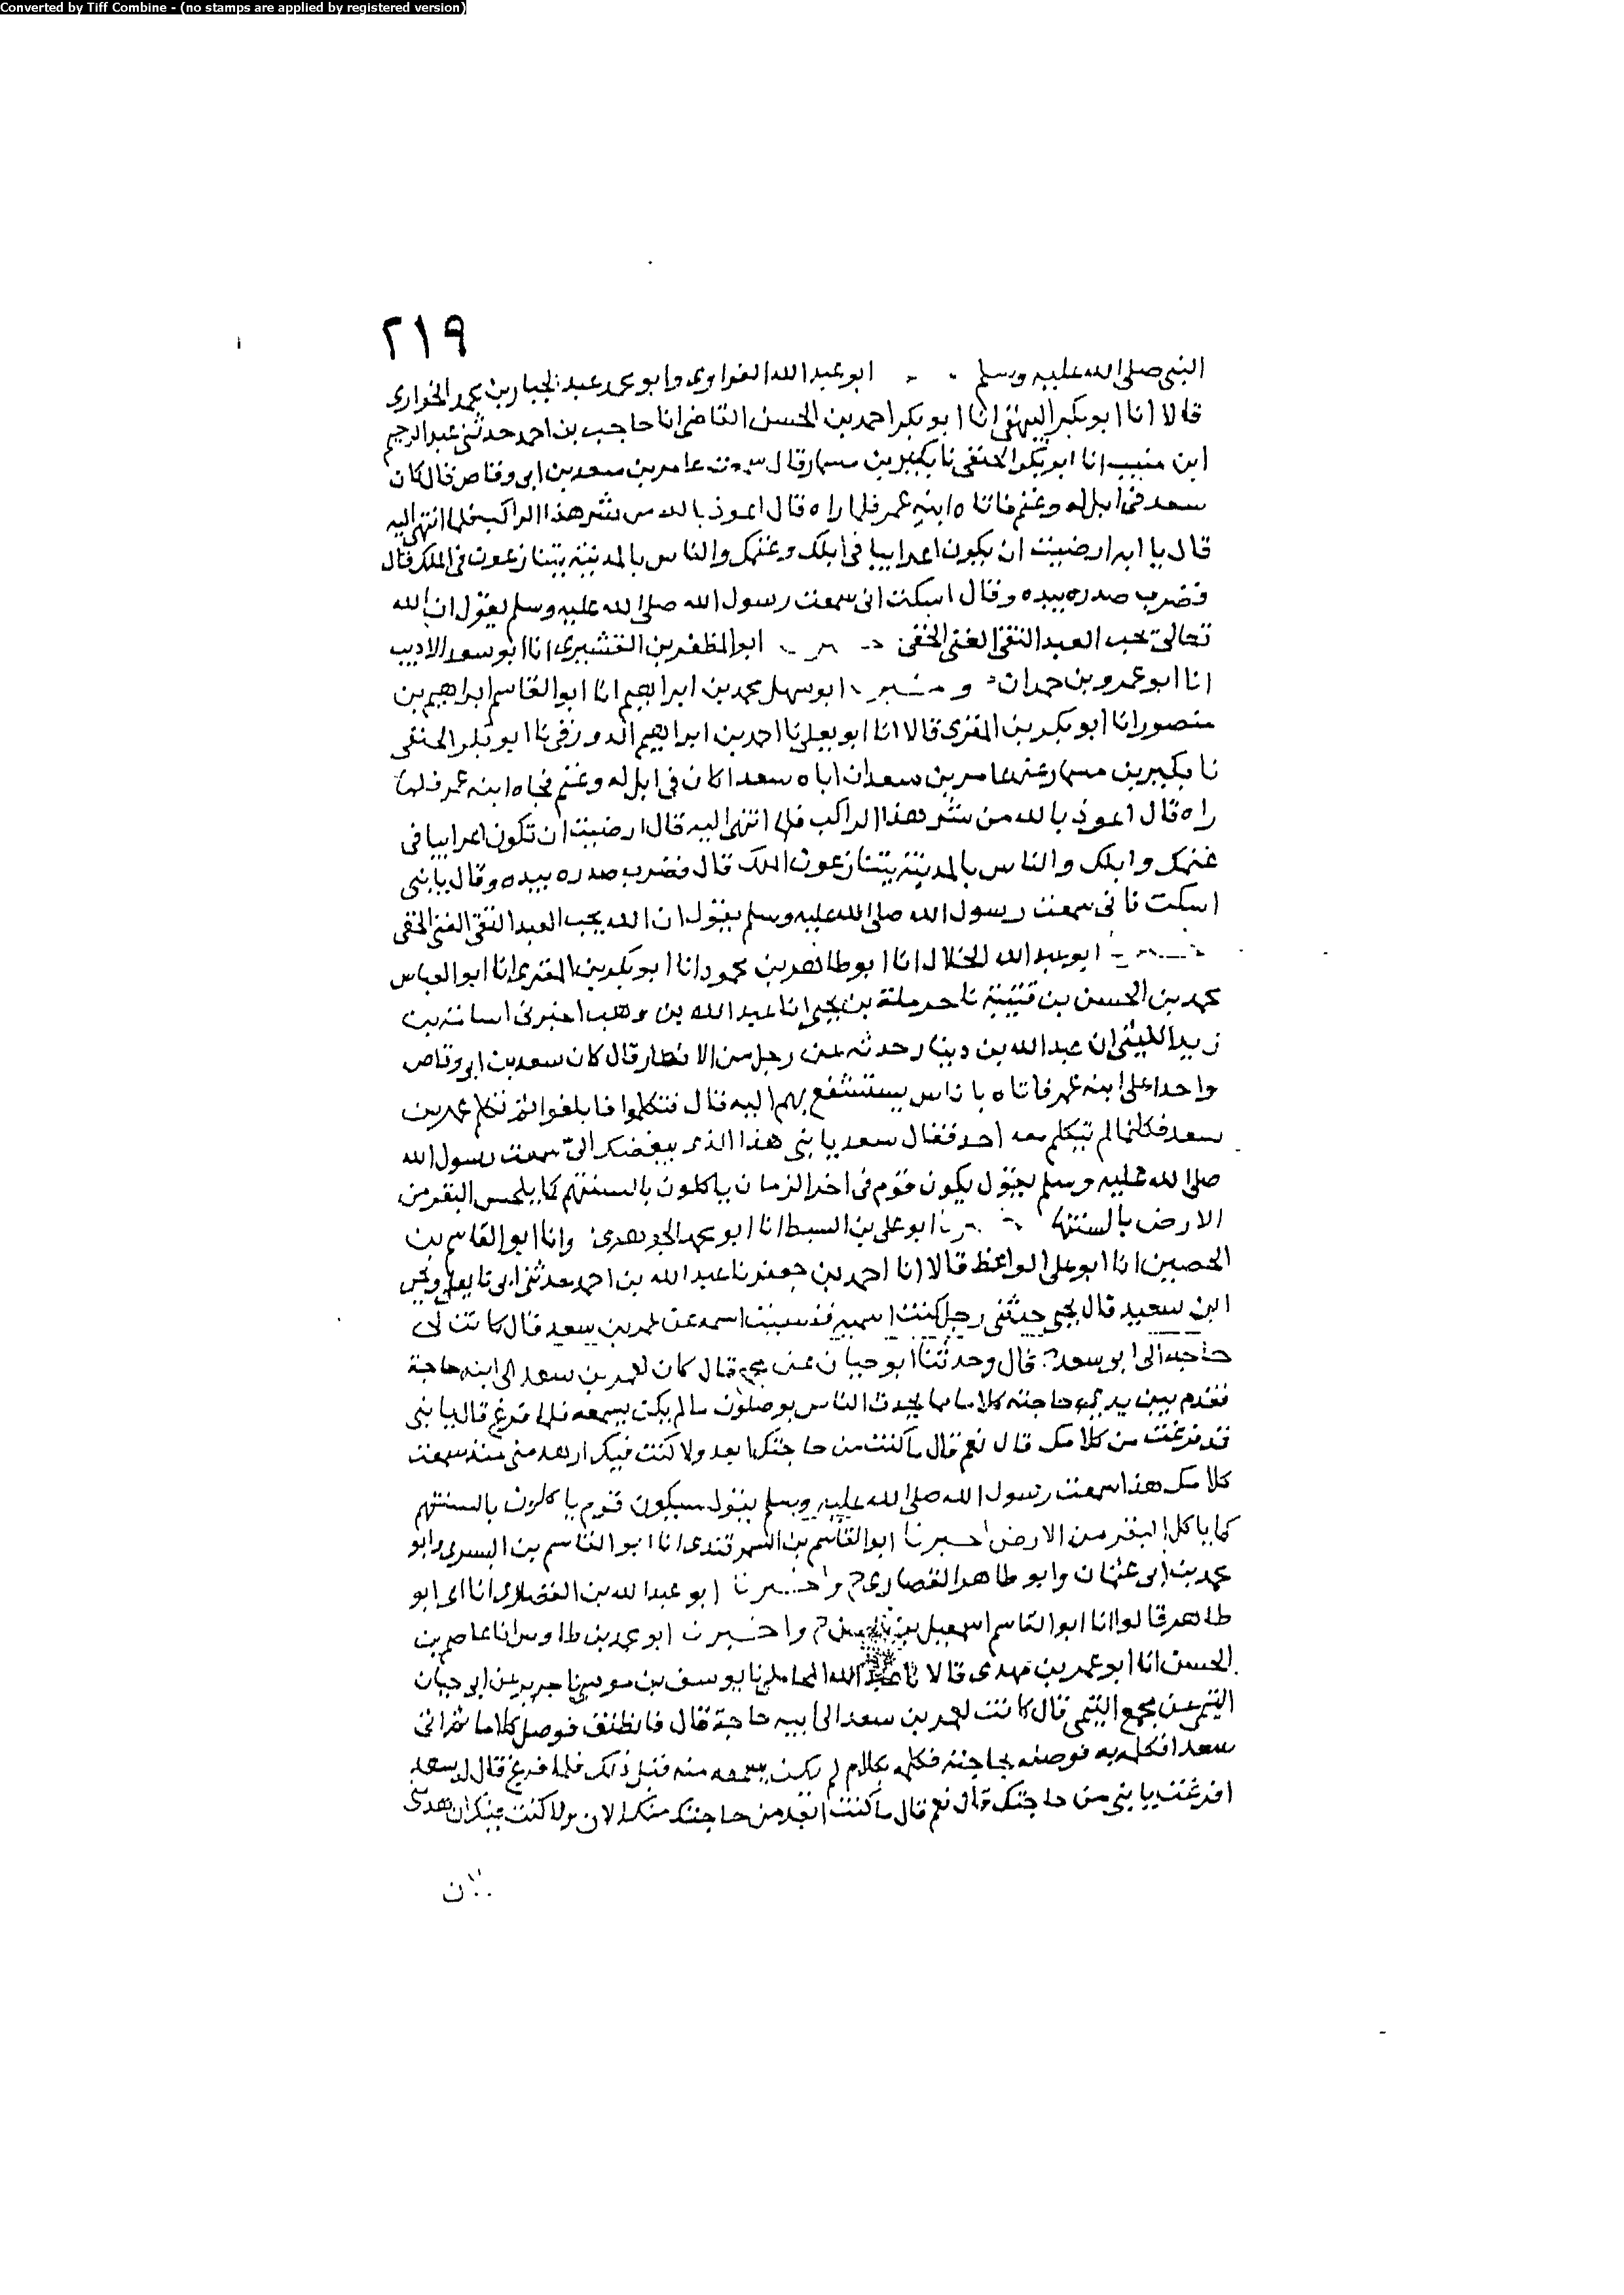 Converted by Tiff Combine - (no stamps are applied by registered version)
٢١٩
النبي صلى الله عليه وسلم ابو عبد الله الفراوى وابو محمد عبد الجبار بن محمد الخوارى
قالا انا ابو بكر البيهقى انا ابو بكر احمد بن الحسن القاضى انا حاجب بن احمد حدثنى عبد الرحيم
ابن منيب انا ابو بكر الحنفى نا بكير بن مسمار قال سمعت عامر بن سعد بن ابى وقاص قال كان
سعد فى ابل له وغنم فاتاه ابنه عمر فلما راه قال اعوذ بالله من شر هذا الراكب فلما انتهى اليه
قال يا ابه ارضيت ان يكون اعرابيا فى ابلك وغنمك والناس بالمدينة يتنازعون فى الملك قال
فضرب صدره بيده وقال اسكت انى سمعت رسول الله صلى الله عليه وسلم يقول ان الله
تعالى يحب العبد التقى الغنى الخفى ابو المظفر بن القشيرى انا ابو سعد الاديب
انا ابو عمرو بن حمدان ح و ابو سهل محمد بن ابراهيم انا ابو القاسم ابراهيم بن
منصور انا ابو بكر بن المقرى قالا انا ابو يعلى نا احمد بن ابراهيم الدورقى نا ابو بكر الحنفى
نا بكير بن مسمار عن عامر بن سعد ان اباه سعدا كان فى ابل له وغنم فجاه ابنه عمر فلما
راه قال اعوذ بالله من شر هذا الراكب فلما انتهى اليه قال ارضيت ان تكون اعرابيا فى
غنمك وابلك والناس بالمدينة يتنازعون الملك قال فضرب صدره بيده وقال يا بنى
اسكت فانى سمعت رسول الله صلى الله عليه وسلم يقول ان الله يحب العبد التقى الغنى الخفى
ابو عبد الله الخلال انا ابو طاهر بن محمود انا ابو بكر بن المقرى انا ابو العباس
محمد بن الحسن بن قتيبة نا حرملة بن يحيى انا عبد الله بن وهب اخبرنى اسامة بن
زيد الليثى ان عبد الله بن دينار حدثه عن رجل من الانصار قال كان سعد بن ابى وقاص
واجدا على ابنه عمر فاتاه باناس يستشفع بهم اليه قال فتكلموا فابلغوا ثم تكلم عمر بن
سعد فكانما لم تيكلم معه احد فقال سعد يا بنى هذا الذى يبغضك الىّ سمعت رسول الله
صلى الله عليه وسلم يقول يكون قوم فى اخر الزمان ياكلون بالسنتهم كما يلحس البقر من
الارض بالسنتها ابو على بن السبط انا ابو محمد الجوهرى وانا ابو القاسم بن
الحصين انا ابو على الواعظ قالا انا احمد بن جعفر نا عبد الله بن احمد حدثنى ابى نا يعلى ويحيى
ابن سعيد قال يحيى حدثنى رجل كنت اسميه فنسيت اسمه عن عمر بن سعد قال كانت لى
حاجه الى ابو سعد ح قال وحدثنا ابو حيان عن مجمع قال كان لعمر بن سعد الى ابيه حاجة
فقدم بين يدى حاجته كلاما مما يحدث الناس يوصلون ما لم يكن يسمعه فلما فرغ قال يا بنى
قد فرغت من كلامك قال نعم قال ما كنت من حاجتك ابعد ولا كنت فيك ازهد منى منذ سمعت
كلامك هذا سمعت رسول الله صلى الله عليه وسلم يقول سيكون قوم ياكلون بالسنتهم
كما ياكل البقر من الارض اخبرنا ابو القاسم بن السمرقندى انا ابو القاسم بن البسرى وابو
محمد بن ابى عثمان وابو طاهر القصارى ح واخبرنا ابو عبد الله بن القصارى انا ابى ابو
طاهر قالوا انا ابو القاسم اسمعيل بن الحسن ح واخبرنا ابو محمد بن طاوس انا عاصم بن
الحسن انا ابو عمر بن مهدى قالا نا عبد الله المحاملى نا يوسف بن موسى نا جرير عن ابى حيان
التيمى عن مجمع التيمى قال كانت لعمر بن سعد الى ابيه حاجة قال فانطلق فوصل كلاما ثم اتى
سعدا فكلمه به فوصله بحاجته فكلمه بكلام لم يكن يسمعه منه قبل ذلك فلما فرغ قال له سعد
افرغت يا بنى من حاجتك قال نعم قال ما كنت ابعد من حاجتك منك الان ولا كنت فيك ازهد منى